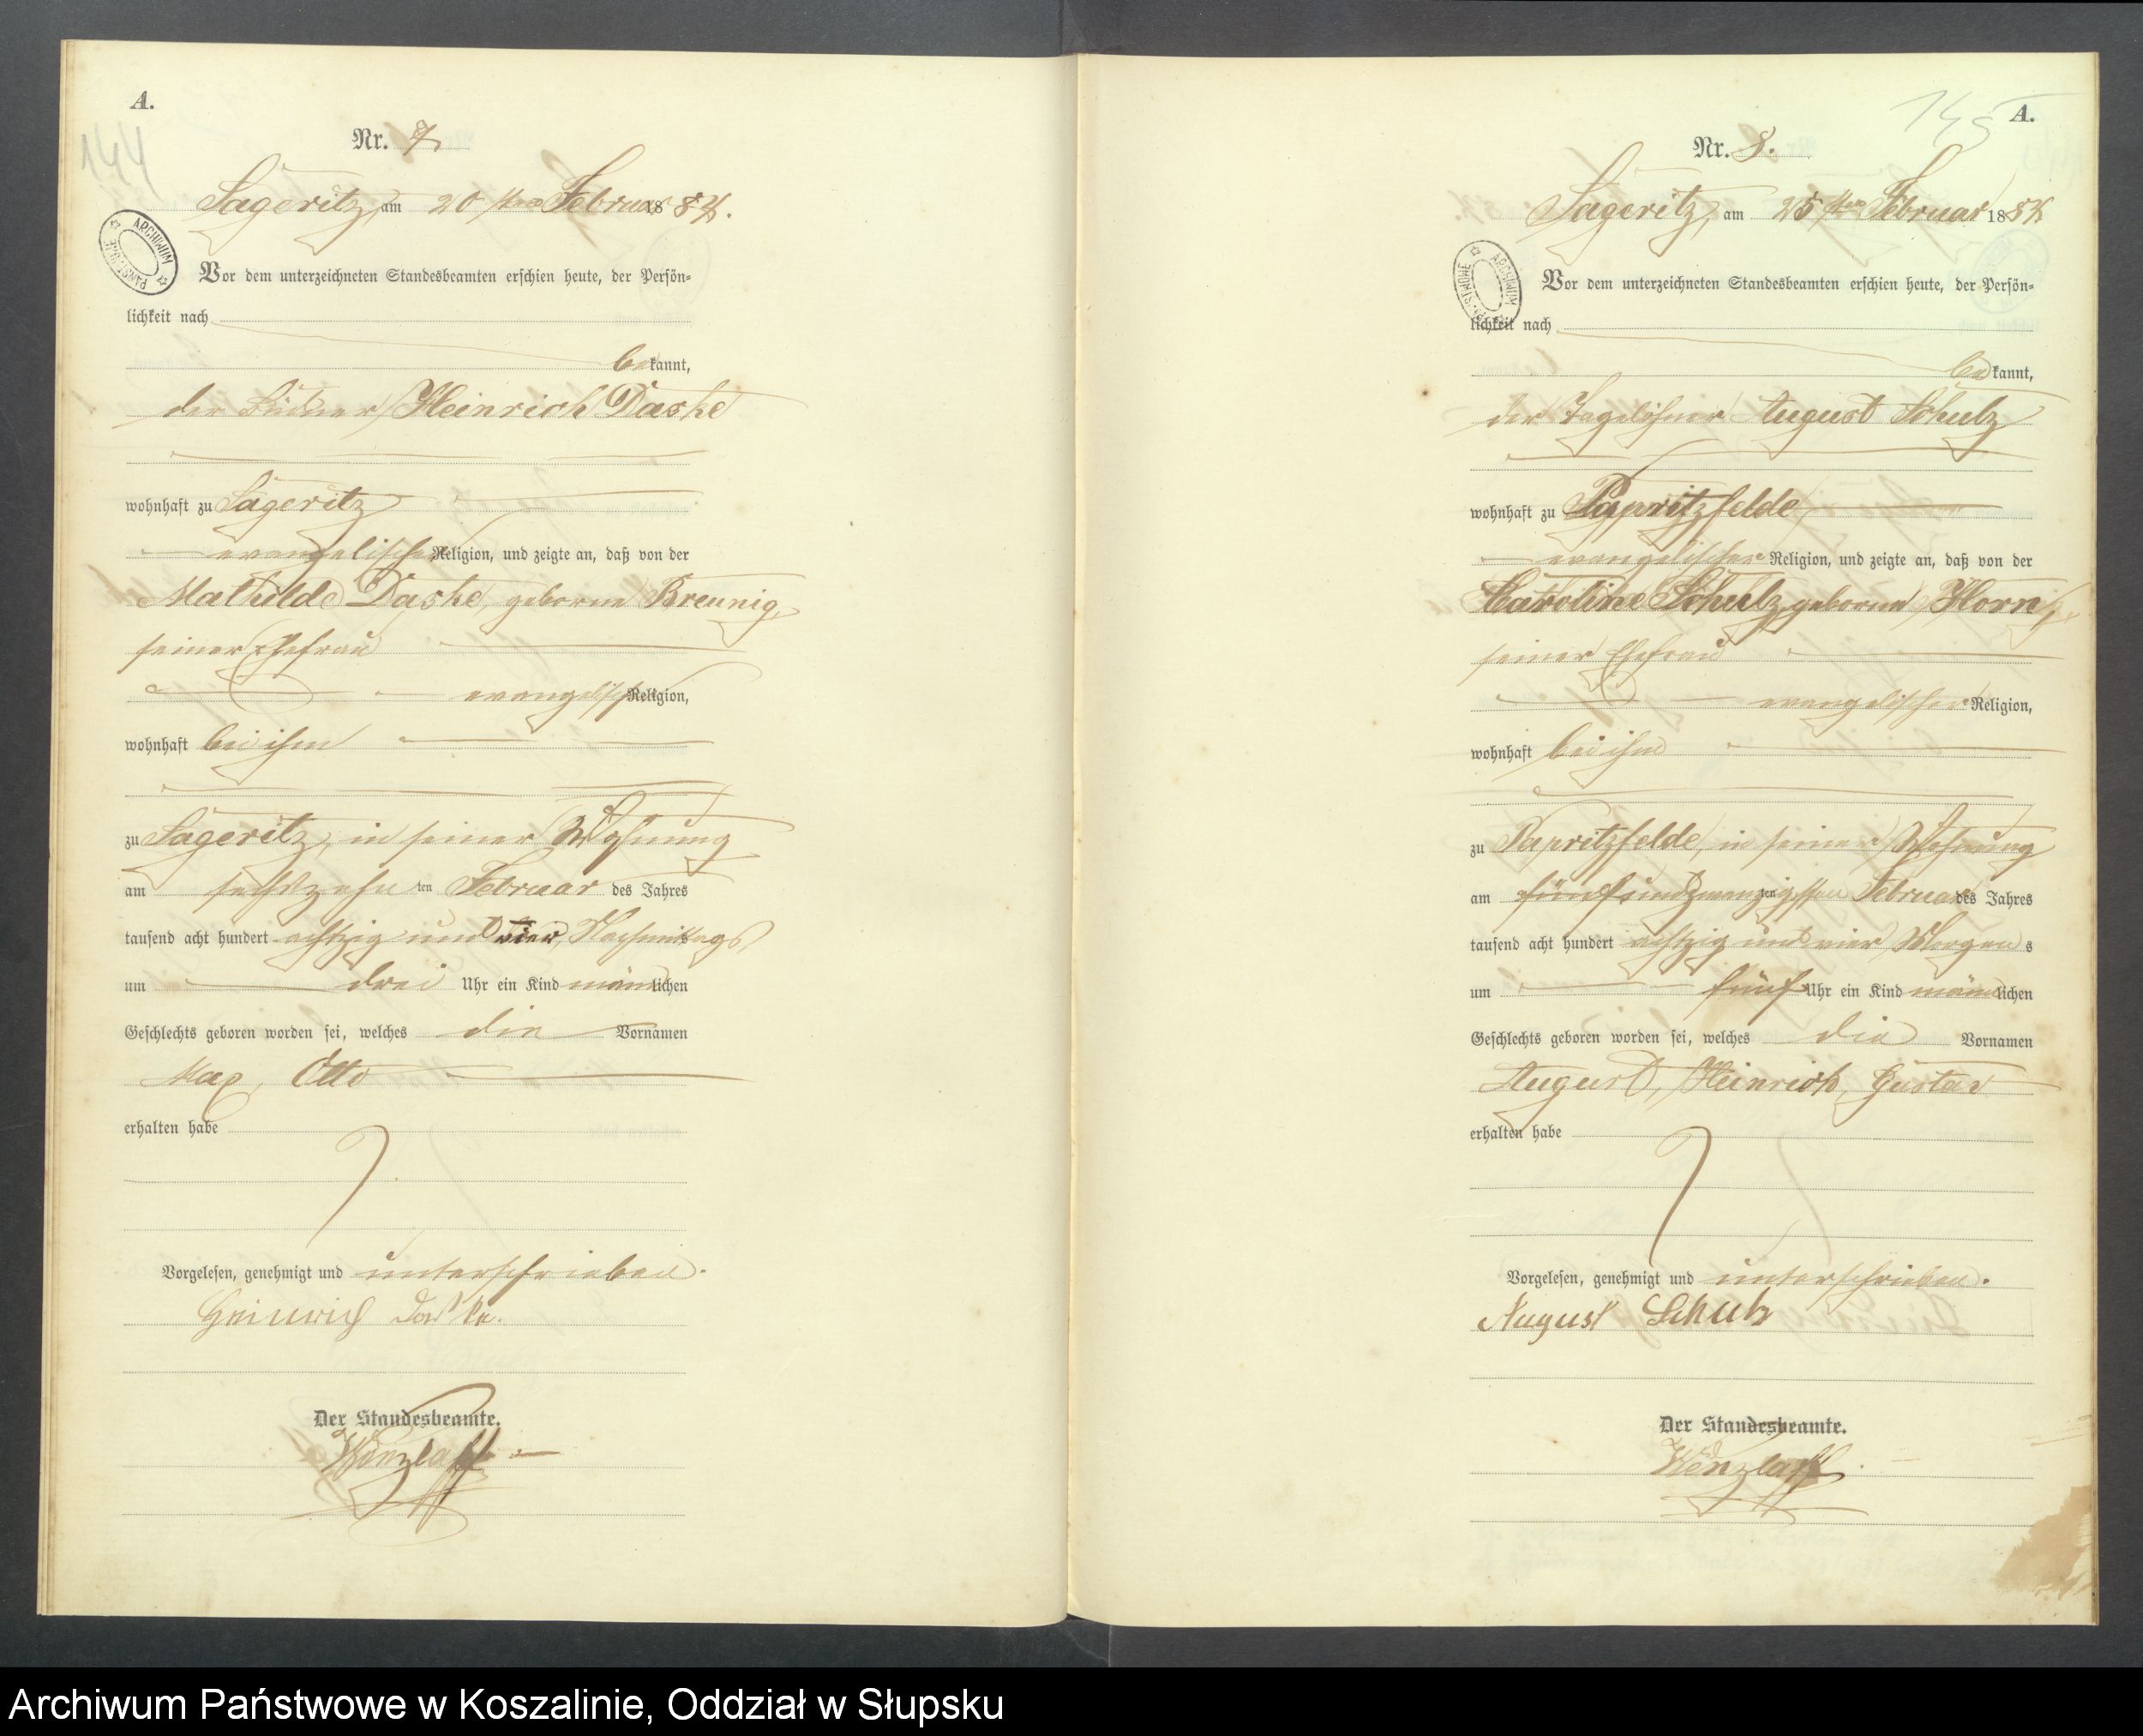 A.
144
Nr. 7
Sageritz, am 20 ten Februar 1884.
ARCHIWUM PAŃSTWOWE
Vor dem unterzeichneten Standesbeamten erschien heute, der Persön-
lichkeit nach
bekannt,
der Büdner Heinrich Daske
wohnhaft zu Sageritz
evangelischer Religion, und zeigte an, daß von der
Mathilde Daske, geborne Breunig,
seiner Ehefrau
evangelischer Religion,
wohnhaft bei ihm
zu Sageritz, in seiner Wohnung
am sechszehn ten Februar des Jahres
tausend acht hundert achtzig und vier, Nachmittags
um drei Uhr ein Kind männlichen
Geschlechts geboren worden sei, welches die Vornamen
Max, Otto
erhalten habe
Vorgelesen, genehmigt und unterschrieben.
Heinrich Daske.
Der Standesbeamte.
Wenzlaff
145 A.
Nr. 8.
Sageritz, am 25 ten Februar 1884
ARCHIWUM PAŃSTWOWE
Vor dem unterzeichneten Standesbeamten erschien heute, der Persön-
lichkeit nach
bekannt,
der Tagelöhner August Schulz
wohnhaft zu Papritzfelde
evangelischer Religion, und zeigte an, daß von der
Caroline Schulz, geborne Horn,
seiner Ehefrau
evangelischer Religion,
wohnhaft bei ihm
zu Papritzfelde, in seiner Wohnung
am fünfundzwanzigsten ten Februar des Jahres
tausend acht hundert achtzig und vier Morgens
um fünf Uhr ein Kind männlichen
Geschlechts geboren worden sei, welches die Vornamen
August, Heinrich, Gustav
erhalten habe
Vorgelesen, genehmigt und unterschrieben.
August Schulz
Der Standesbeamte.
Wenzlaff
Archiwum Państwowe w Koszalinie, Oddział w Słupsku